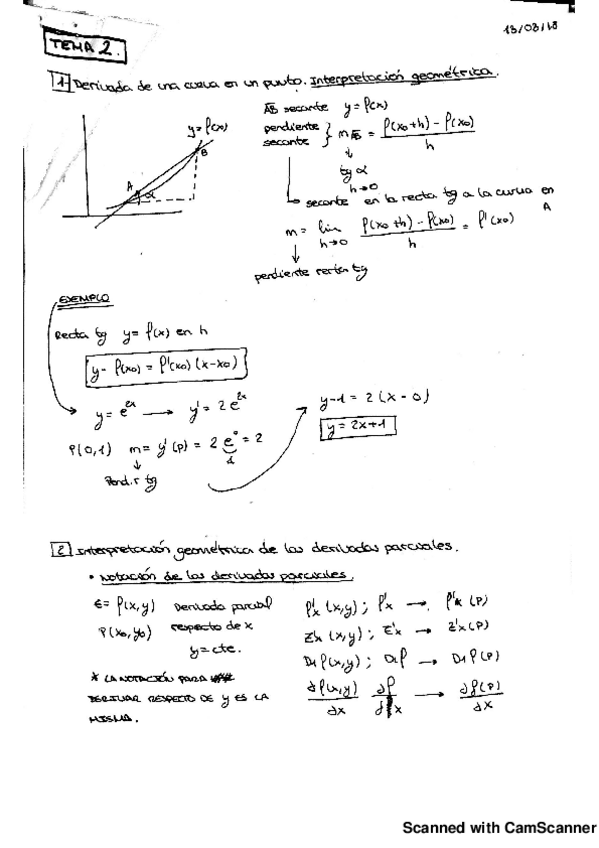 13/03/18
TEMA 2.
1 Derivada de una curva en un punto. Interpretación geométrica.
AB secante y = f(x)
y = f(x)
pendiente secante } m AB = f(x0+h) - f(x0) / h
B
A
α
tg α
h→0
secante en la recta tg a la curva en A
m = lim h→0 f(x0+h) - f(x0) / h = f'(x0)
pendiente recta tg
EJEMPLO
Recta tg y = f(x) en h
y - f(x0) = f'(x0) (x-x0)
y = e^2x → y' = 2e^2x
P(0,1) m = y'(P) = 2 e^0 = 2
1
Pend. r tg
y-1 = 2(x-0)
y = 2x+1
2 Interpretación geométrica de las derivadas parciales.
• Notación de las derivadas parciales.
z = f(x,y) Derivada parcial
P(x0,y0) respecto de x
y = cte.
* LA NOTACIÓN PARA
DERIVAR RESPECTO DE Y ES LA
MISMA.
f'x (x,y) ; f'x → f'x (P)
z'x (x,y) ; z'x → z'x (P)
D1 f(x,y) ; D1 f → D1 f(P)
∂f(x,y)/∂x ∂f/∂x → ∂f(P)/∂x
Scanned with CamScanner